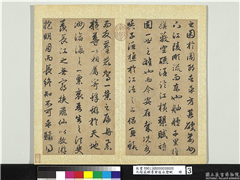 之困於周郎者乎方其破荊州
下江陵順流而東也舳艫千里旌
旗蔽空釃酒臨江橫槊賦詩
固一世之雄也而今安在哉況吾
與子漁樵於江渚之上侶魚蝦
而友麋鹿駕一葉之扁舟舉匏
樽以相屬寄蜉蝣於天地
渺滄海之一粟哀吾生之須臾
羨長江之無窮挾飛仙以遨遊
抱明月而長終知不可乎驟得
3